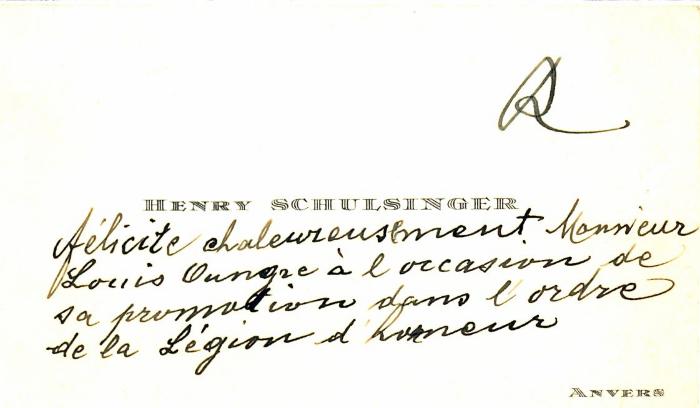 R
HENRY SCHULSINGER
félicite chaleureusement Monsieur
Louis Oungre à l'occasion de
sa promotion dans l'ordre
de la Légion d'honneur
ANVERS